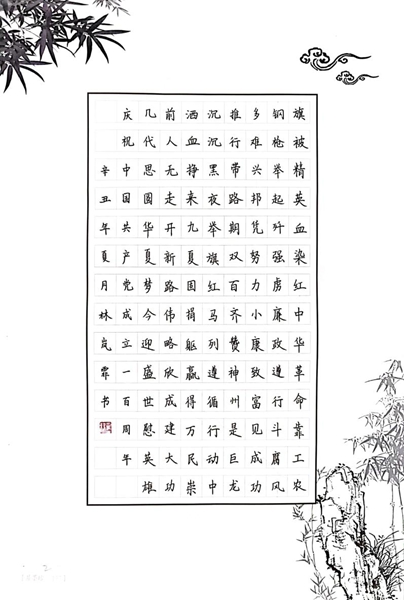 旗被精英血染红中华革命靠工农
钢枪举起歼强虏廉政遵行斗腐风
多难兴邦凭努力小康致富见成功
推行带路期双百齐赞神州是巨龙
沉沉黑夜举旗红马列遵循行动中
洒血挣来九夏国捐躯赢得万民崇
前人无走开新路伟略欣成建大功
几代思圆华夏梦今迎盛世慰英雄
庆祝中国共产党成立一百周年
辛丑年夏月林岚霏书